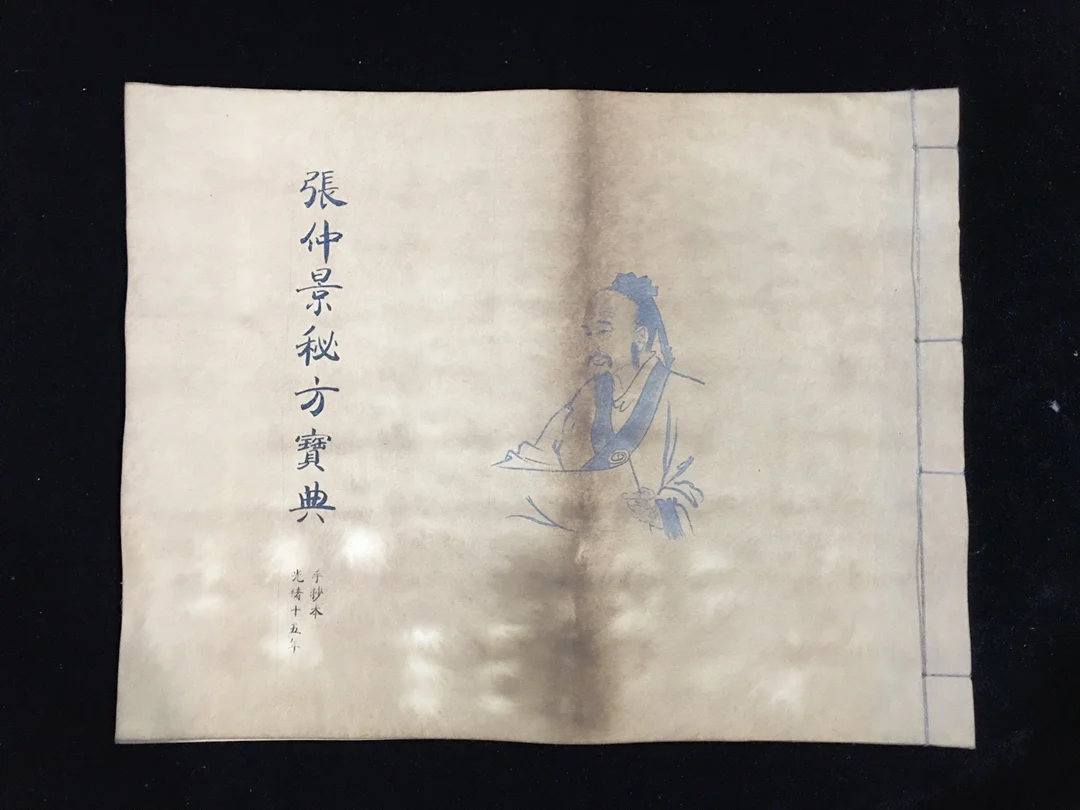 張仲景秘方寶典
手抄本
光緒十五年